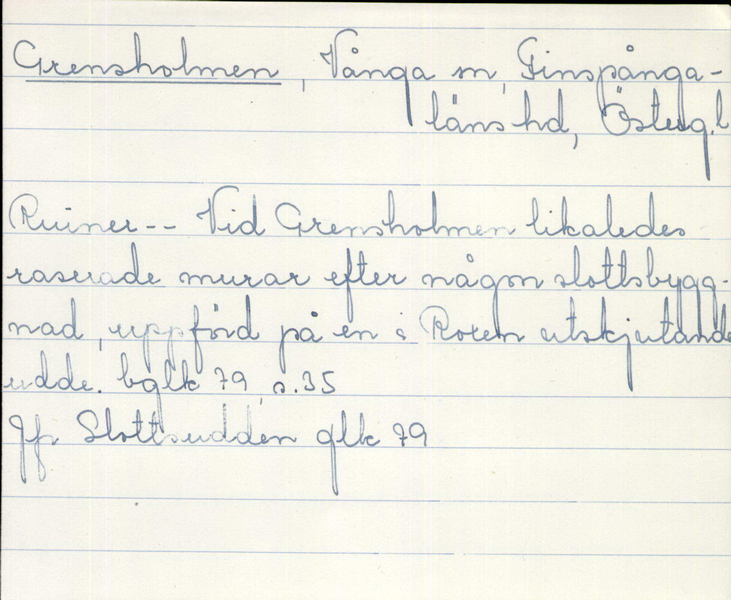 Grensholmen, Vånga sn, Finspånga-
läns hd, Östergl
Ruiner -- Vid Grensholmen likaledes
raserade murar efter någon slottsbygg-
nad, uppförd på en i Roxen utskjutande
udde. bglk 79, s.35
Jfr Slottsudden glk 79